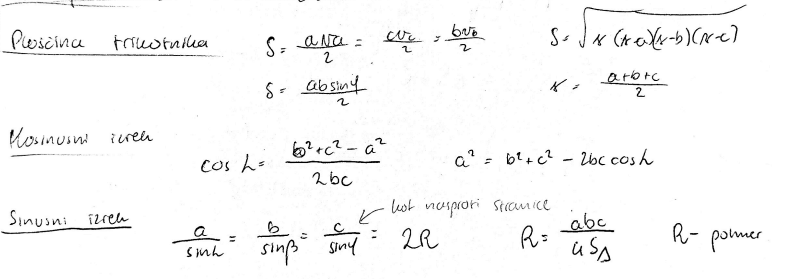 Ploščina trikotnika S = a va / 2 = c vc / 2 = b vb / 2 S = √(s (s-a)(s-b)(s-c))
S = ab sin γ / 2 s = a+b+c / 2
Kosinusni izrek cos α = b² + c² - a² / 2bc a² = b² + c² - 2bc cos α
Sinusni izrek a / sin α = b / sin β = c / sin γ = 2R ← kot nasproti stranice R = abc / 4 S△ R - polmer